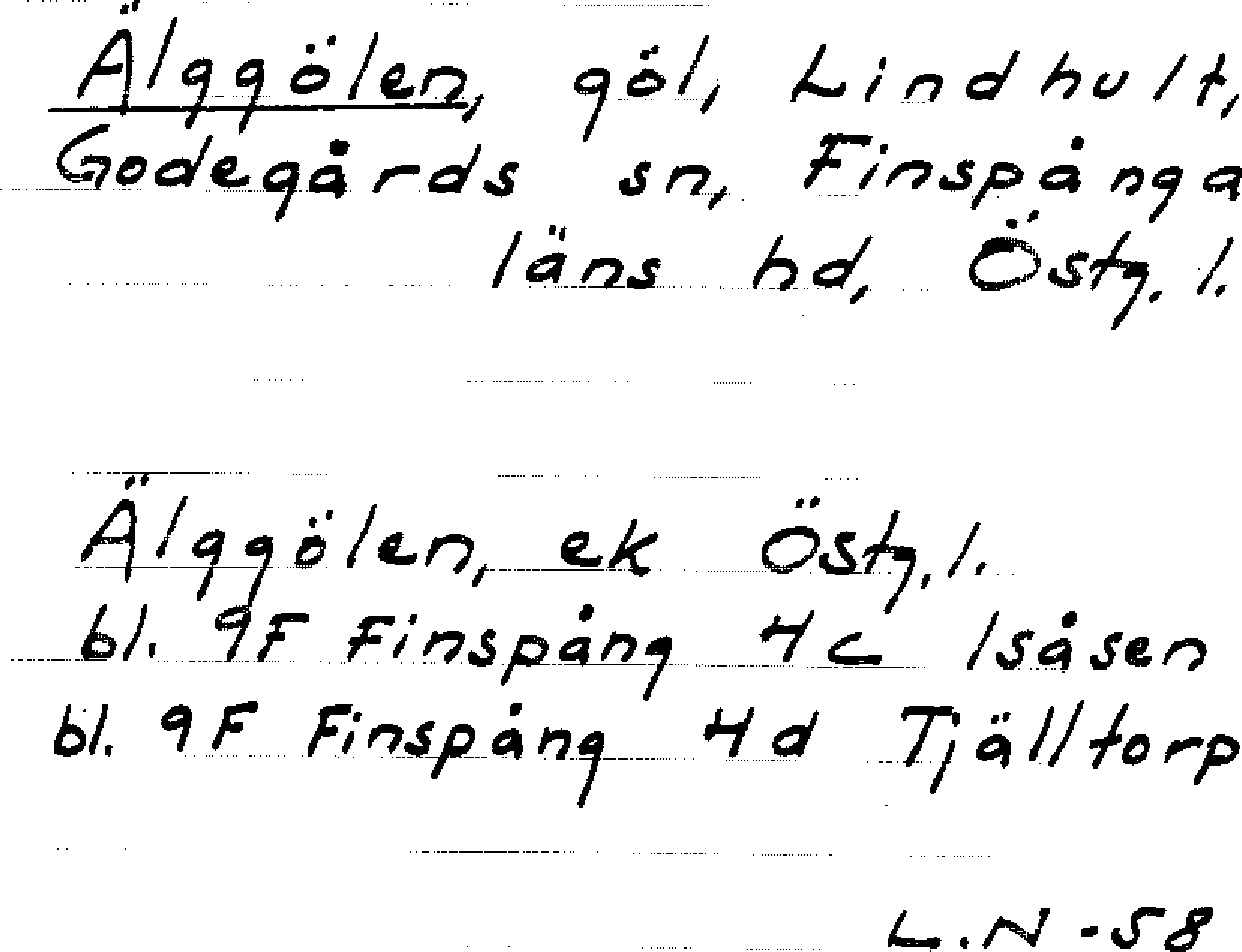 Älggölen, göl, Lindhult,
Godegårds sn, Finspånga
läns hd, Östg. l.
Älggölen, ek Östg. l.
bl. 9F Finspång 4c Isåsen
bl. 9F Finspång 4d Tjälltorp
L.N -58